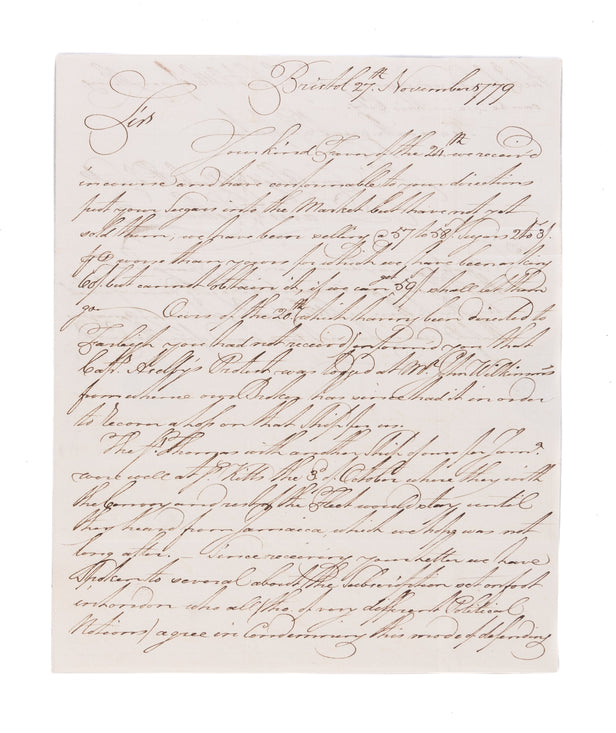 Bristol 27.th November 1779
Sir
Your kind Favor of the 24th we received
in course and have conformable to your directions
put your Sugars into the Market but have not yet
sold them, we have been selling @ 57 to 58/. Sugars 2 to 3/.
worse than yours for which we have been asking
60/. but cannot obtain it, if we can get 59/. shall let them
go. Ours of the 20th which having been directed to
Farleigh you had not received informed you that
Capt. Protest was lodged at Mr. John Wilkinson's
from whence our Broker has since had it in order
to recover a loss on that Ship for us.
The Thomas with another Ship of ours for Jama.
were well at St. Kitts the 3d. October where they with
the Convoy and rest of the Fleet would stay until
they heard from Jamaica, which we hope was not
long after. — Since receiving your letter we have
Spoken to several about the Subscription set on foot
in London who all (tho of very different Political
Notions) agree in Condemning this mode of defending